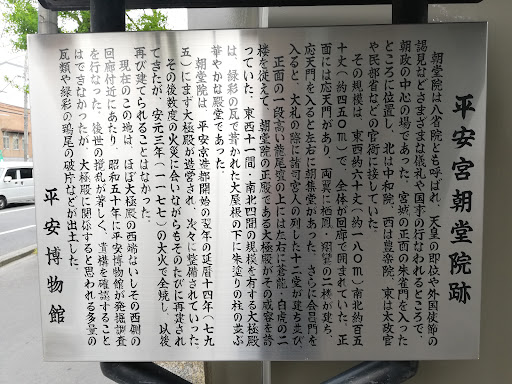 平安宮朝堂院跡
朝堂院は八省院とも呼ばれ、天皇の即位や外国使節の
謁見などさまざまな儀礼や国事の行なわれるところで、
朝政の中心の場であった。宮城の正面の朱雀門を入った
ところに位置し、北は中和院、西は豊楽院、東は太政官
や民部省などの官衙に接していた。
その規模は、東西約六十丈(約一八〇m)南北約百五
十丈(約四五〇m)で、全体が回廊で囲まれていた。正
面には応天門があり、両翼に栖鳳、翔鸞の二楼が建ち、
応天門を入ると左右に朝集堂があった。さらに会昌門を
入ると、大礼の際に諸司官人の列した十二堂が建ち並び、
正面の一段高い龍尾壇の上には左右に蒼龍、白虎の二
楼を従えて、朝堂院の正殿である大極殿がその威容を誇
っていた。東西十一間・南北四間の規模を有する大極殿
は、緑彩の瓦で葺かれた大屋根の下に朱塗りの柱の並ぶ
華やかな殿堂であった。
朝堂院は、平安京造都開始の翌年の延暦十四年(七九
五)にまず大極殿が造営され、次々に整備されていった。
その後数度の火災に会いながらもそのたびに再建され
てきたが、安元三年(一一七七)の大火で全焼し、以後
再び建てられることはなかった。
現在のこの地は、ほぼ大極殿の西端ないしその西側の
回廊付近にあたり、昭和五十年に平安博物館が発掘調査
を行なった。後世の撹乱が著しく、遺構を確認すること
はできなかったが、大極殿に関係すると思われる多量の
瓦類や緑彩の鴟尾の破片などが出土した。
平安博物館